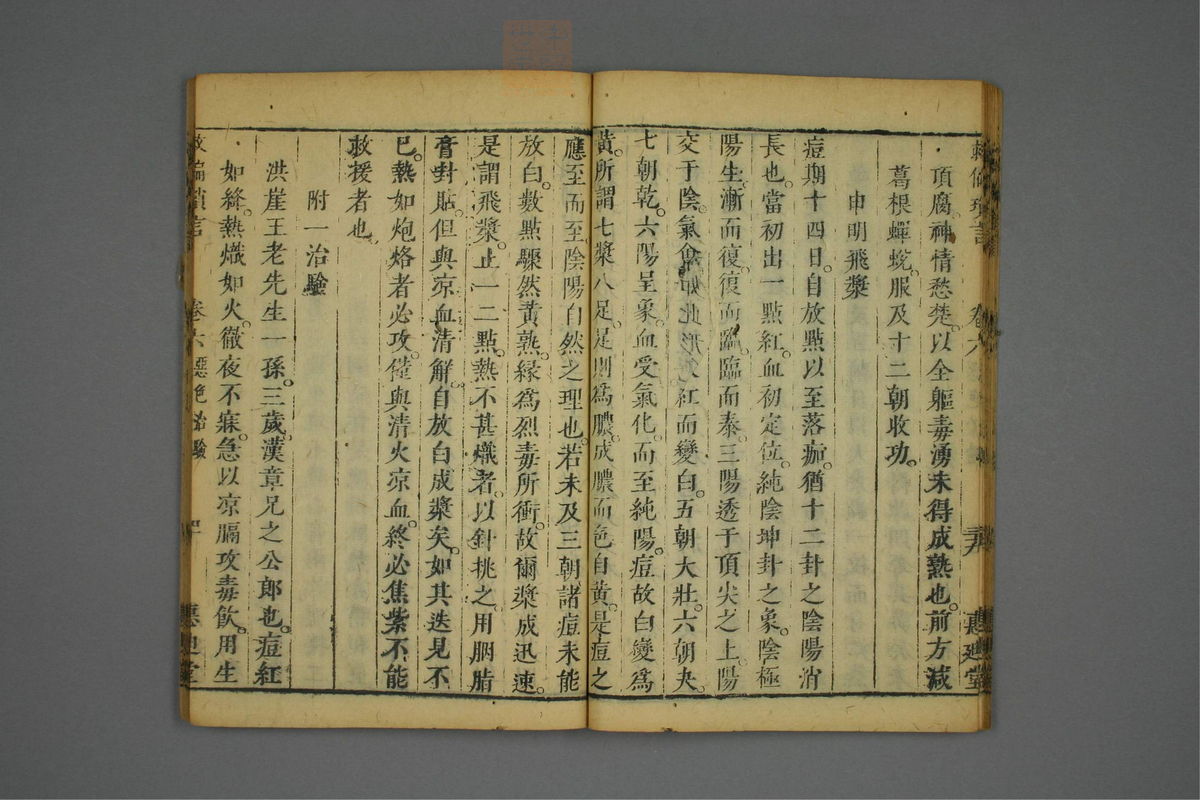 頂腐神情愁楚。以全軀毒湧未得成熟也。前方減
葛根蟬蛻。服及十二朝收功。
申明飛漿
痘期十四日。自放點以至落痂。猶十二卦之陰陽消
長也。當初出一點紅。血初定位。純陰坤卦之象。陰極
陽生。漸而復。復而臨。臨而泰。三陽透于頂尖之上。陽
交于陰。氣會如此形。紅而變白。五朝大壯。六朝夬。
七朝乾。六陽呈象。血受氣化。而至純陽。痘故白變爲
黃。所謂七漿八足。足則爲膿。成膿而色自黃。是痘之
應至而至。陰陽自然之理也。若未及三朝。諸痘未能
放白。數點驟然黃熟。緣爲烈毒所衝。故爾漿成迅速。
是謂飛漿。止一二點。熱不甚熾者。以針挑之。用胭脂
膏封貼。但與凉血清解。自放白成漿矣。如其迭見不
已。熱如炮烙者必攻。僅與清火凉血。終必焦紫不能
救援者也。
附一治驗
洪崖王老先生一孫。三歲。漢章兄之公郎也。痘紅
如絳。熱熾如火。徹夜不寐。急以凉膈攻毒飲。用生
卷六 惡色治驗